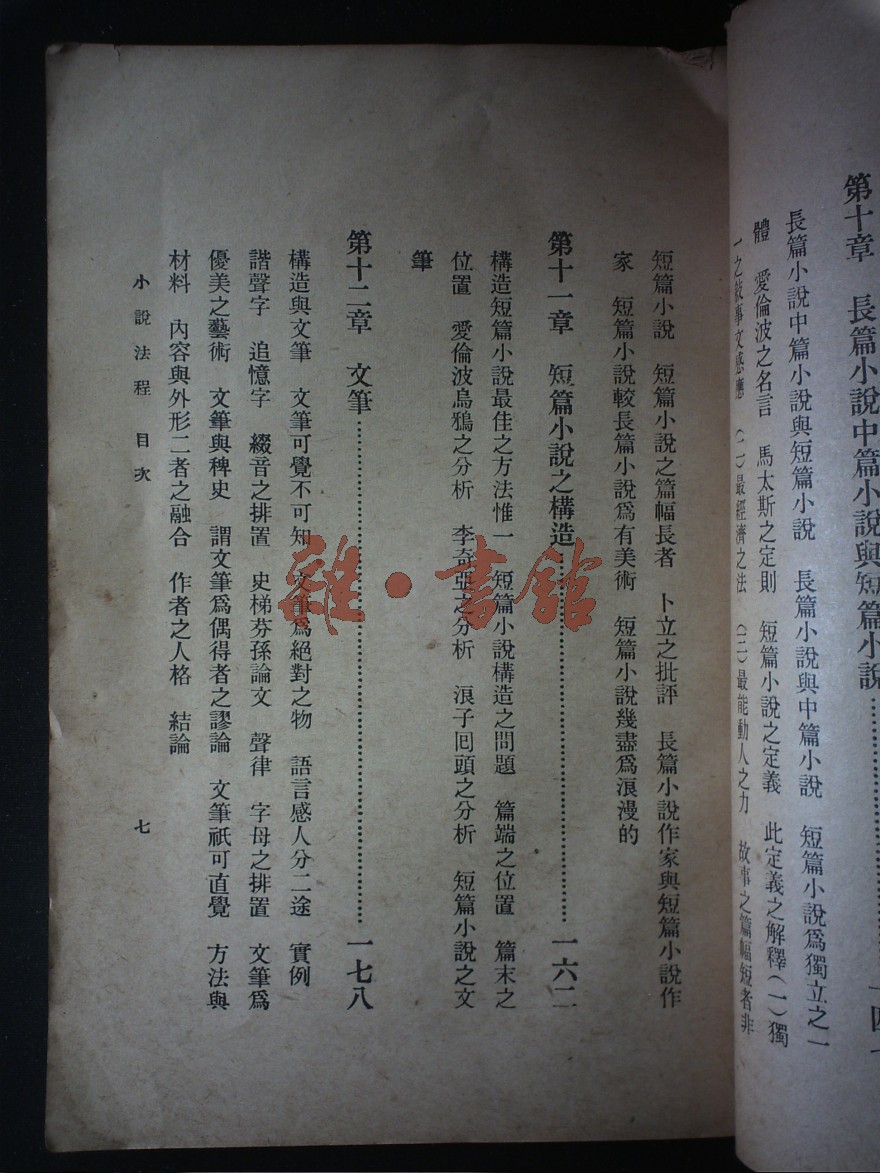 第十章　長篇小說中篇小說與短篇小說
長篇小說中篇小說與短篇小說　長篇小說與中篇小說　短篇小說爲獨立之一
體　愛倫波之名言　馬太斯之定則　短篇小說之定義　此定義之解釋(一)獨
一之敍事文感應　(二)最經濟之法　(三)最能動人之力　故事之篇幅短者非
短篇小說　短篇小說之篇幅長者　卜立之批評　長篇小說作家與短篇小說作
家　短篇小說較長篇小說爲有美術　短篇小說幾盡爲浪漫的
第十一章　短篇小說之構造……一六二
構造短篇小說最佳之方法惟一　短篇小說構造之問題　篇端之位置　篇末之
位置　愛倫波烏鴉之分析　李奇亞之分析　浪子囘頭之分析　短篇小說之文
筆
第十二章　文筆……一七八
構造與文筆　文筆可覺不可知　文筆爲絕對之物　語言感人分二途　實例
諧聲字　追憶字　綴音之排置　史梯芬孫論文　聲律　字母之排置　文筆爲
優美之藝術　文筆與稗史　謂文筆爲偶得者之謬論　文筆祇可直覺　方法與
材料　內容與外形二者之融合　作者之人格　結論
小說法程　目次　七
雜・書館